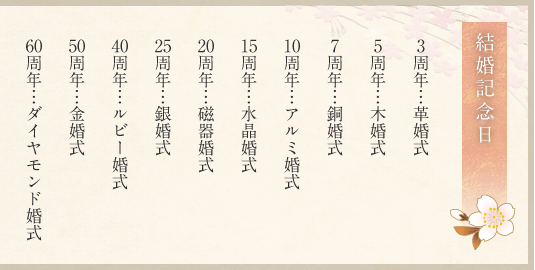 結婚記念日
3周年…革婚式
5周年…木婚式
7周年…銅婚式
10周年…アルミ婚式
15周年…水晶婚式
20周年…磁器婚式
25周年…銀婚式
40周年…ルビー婚式
50周年…金婚式
60周年…ダイヤモンド婚式